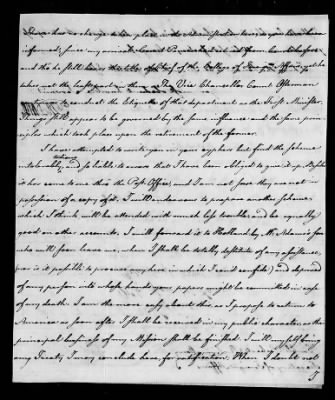 There has no change taken place in the Administration
informed, since my arrival. Count Panin
and tho' he still bears the title of Chief of the College of Foreign Affairs, yet he
takes not the least part in them. The Vice Chancellor Count Osterman
conducts the etiquette of this department as the first Minister
appear to be governed by the same influence and the same prin-
ciples which took place upon the retirement of the former.
I have attempted to write you in your cyphers but find the scheme
intolerably tedious, and so liable to errors that I have been obliged to give it up. Besides
it has come to me thro' the Post Office, and I am not sure they are not in
possession of a copy of it. I will endeavour to prepare another scheme
which I think will be attended with much less trouble, and be equally
good on other accounts. I will forward it to Holland by Mr. Adams's Son
who will soon leave me, when I shall be totally destitute of any assistance,
(nor is it possible to procure any here in which I could confide) and deprived
of any person into whose hands your papers might be committed in case
of my death. I am the more easy about this as I propose to return to
America as soon after I shall be received in my public character, as the
principal business of my Mission shall be finished. I will myself bring
any Treaty I may conclude here, for ratification. When I should not